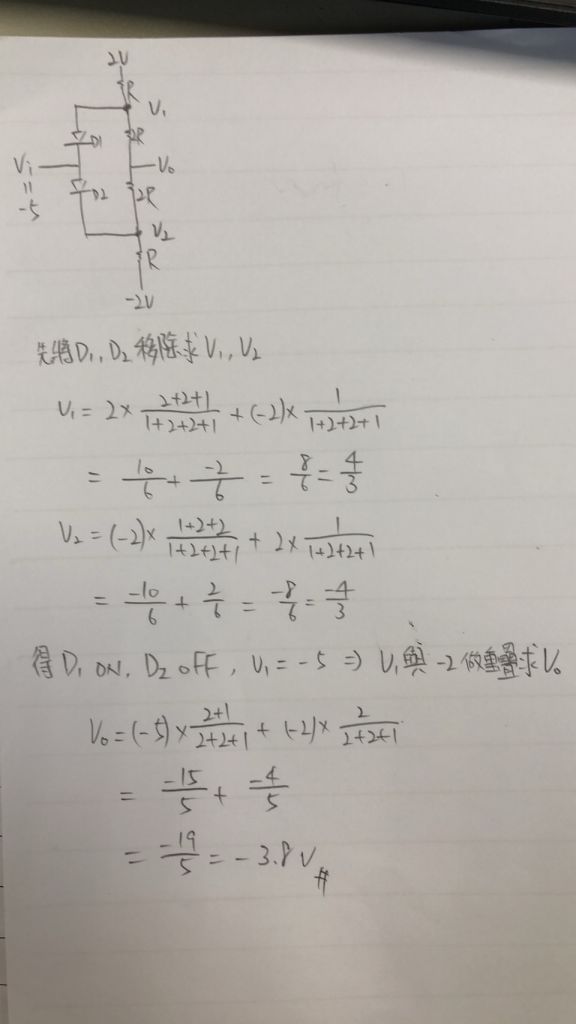 2V
R
V₁
D1
2R
Vi
V₀
||
-5
D2
2R
V₂
R
-2V
先將D₁, D₂移除求V₁, V₂
V₁ = 2 × (2+2+1)/(1+2+2+1) + (-2) × 1/(1+2+2+1)
= 10/6 + -2/6 = 8/6 = 4/3
V₂ = (-2) × (1+2+2)/(1+2+2+1) + 2 × 1/(1+2+2+1)
= -10/6 + 2/6 = -8/6 = -4/3
得 D₁ ON, D₂ OFF, V₁ = -5 ⇒ V₁與 -2 做重疊求V₀
V₀ = (-5) × (2+1)/(2+2+1) + (-2) × 2/(2+2+1)
= -15/5 + -4/5
= -19/5 = -3.8V #